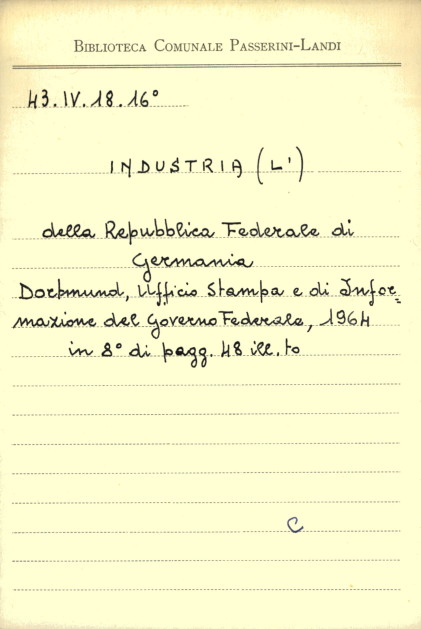 BIBLIOTECA COMUNALE PASSERINI-LANDI
43.IV.18.16°
INDUSTRIA (L')
della Repubblica Federale di
Germania
Dortmund, Ufficio Stampa e di Infor=
mazione del Governo Federale, 1964
in 8° di pagg. 48 ill.to
C